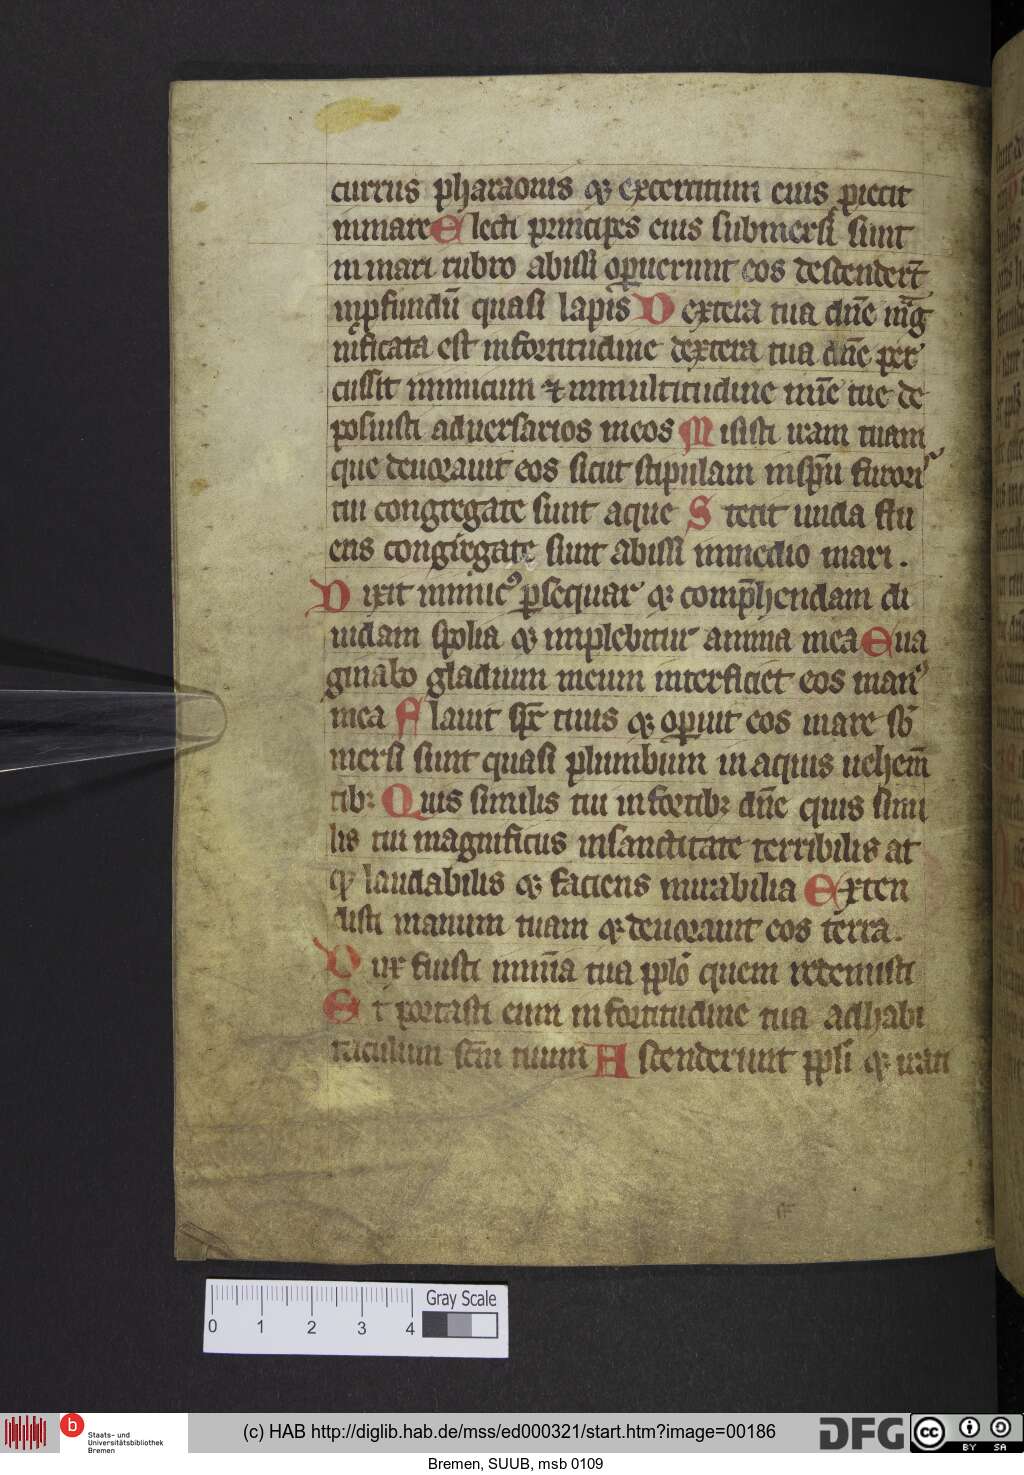 currus pharaonis ⁊ excercitum eius ꝓiecit
inmare Electi principes eius submersi sunt
in mari rubro abissi oꝑuerunt eos descendert̄
inꝓfundū quasi lapis Dextera tua dn̄e mag
nificata est infortitudine dextera tua dn̄e per
cussit inimicum ⁊ inmultitudine gl̄ie tue de
posuisti aduersarios meos Misisti iram tuam
que deuorauit eos sicut stipulam inspū furoris
tui congregate sunt aque Stetit unda flu
ens congregate sunt abissi inmedio mari .
Dixit inimicꝰ ꝑsequar ⁊ comp̄hendam di
uidam spolia ⁊ implebitur anima mea Eua
ginabo gladium meum interficiet eos manꝰ
mea Flauit spc̄ tuus ⁊ oꝑuit eos mare sb̄
mersi sunt quasi plumbum in aquis uehem̄
tibꝫ Quis similis tui infortibꝫ dn̄e quis simi
lis tui magnificus insanctitate terribilis at
qꝫ laudabilis ⁊ faciens mirabilia Exten
disti manum tuam ⁊ deuorauit eos terra .
Dux fuisti inmīa tua ppl̄o quem redemisti
Et portasti eum infortitudine tua adhabi
taculum scm̄ tuum Ascenderunt ppl̄i ⁊ irati
0 1 2 3 4 Gray Scale
b Staats- und
Universitätsbibliothek
Bremen
(c) HAB http://diglib.hab.de/mss/ed000321/start.htm?image=00186
DFG cc BY SA
Bremen, SUUB, msb 0109